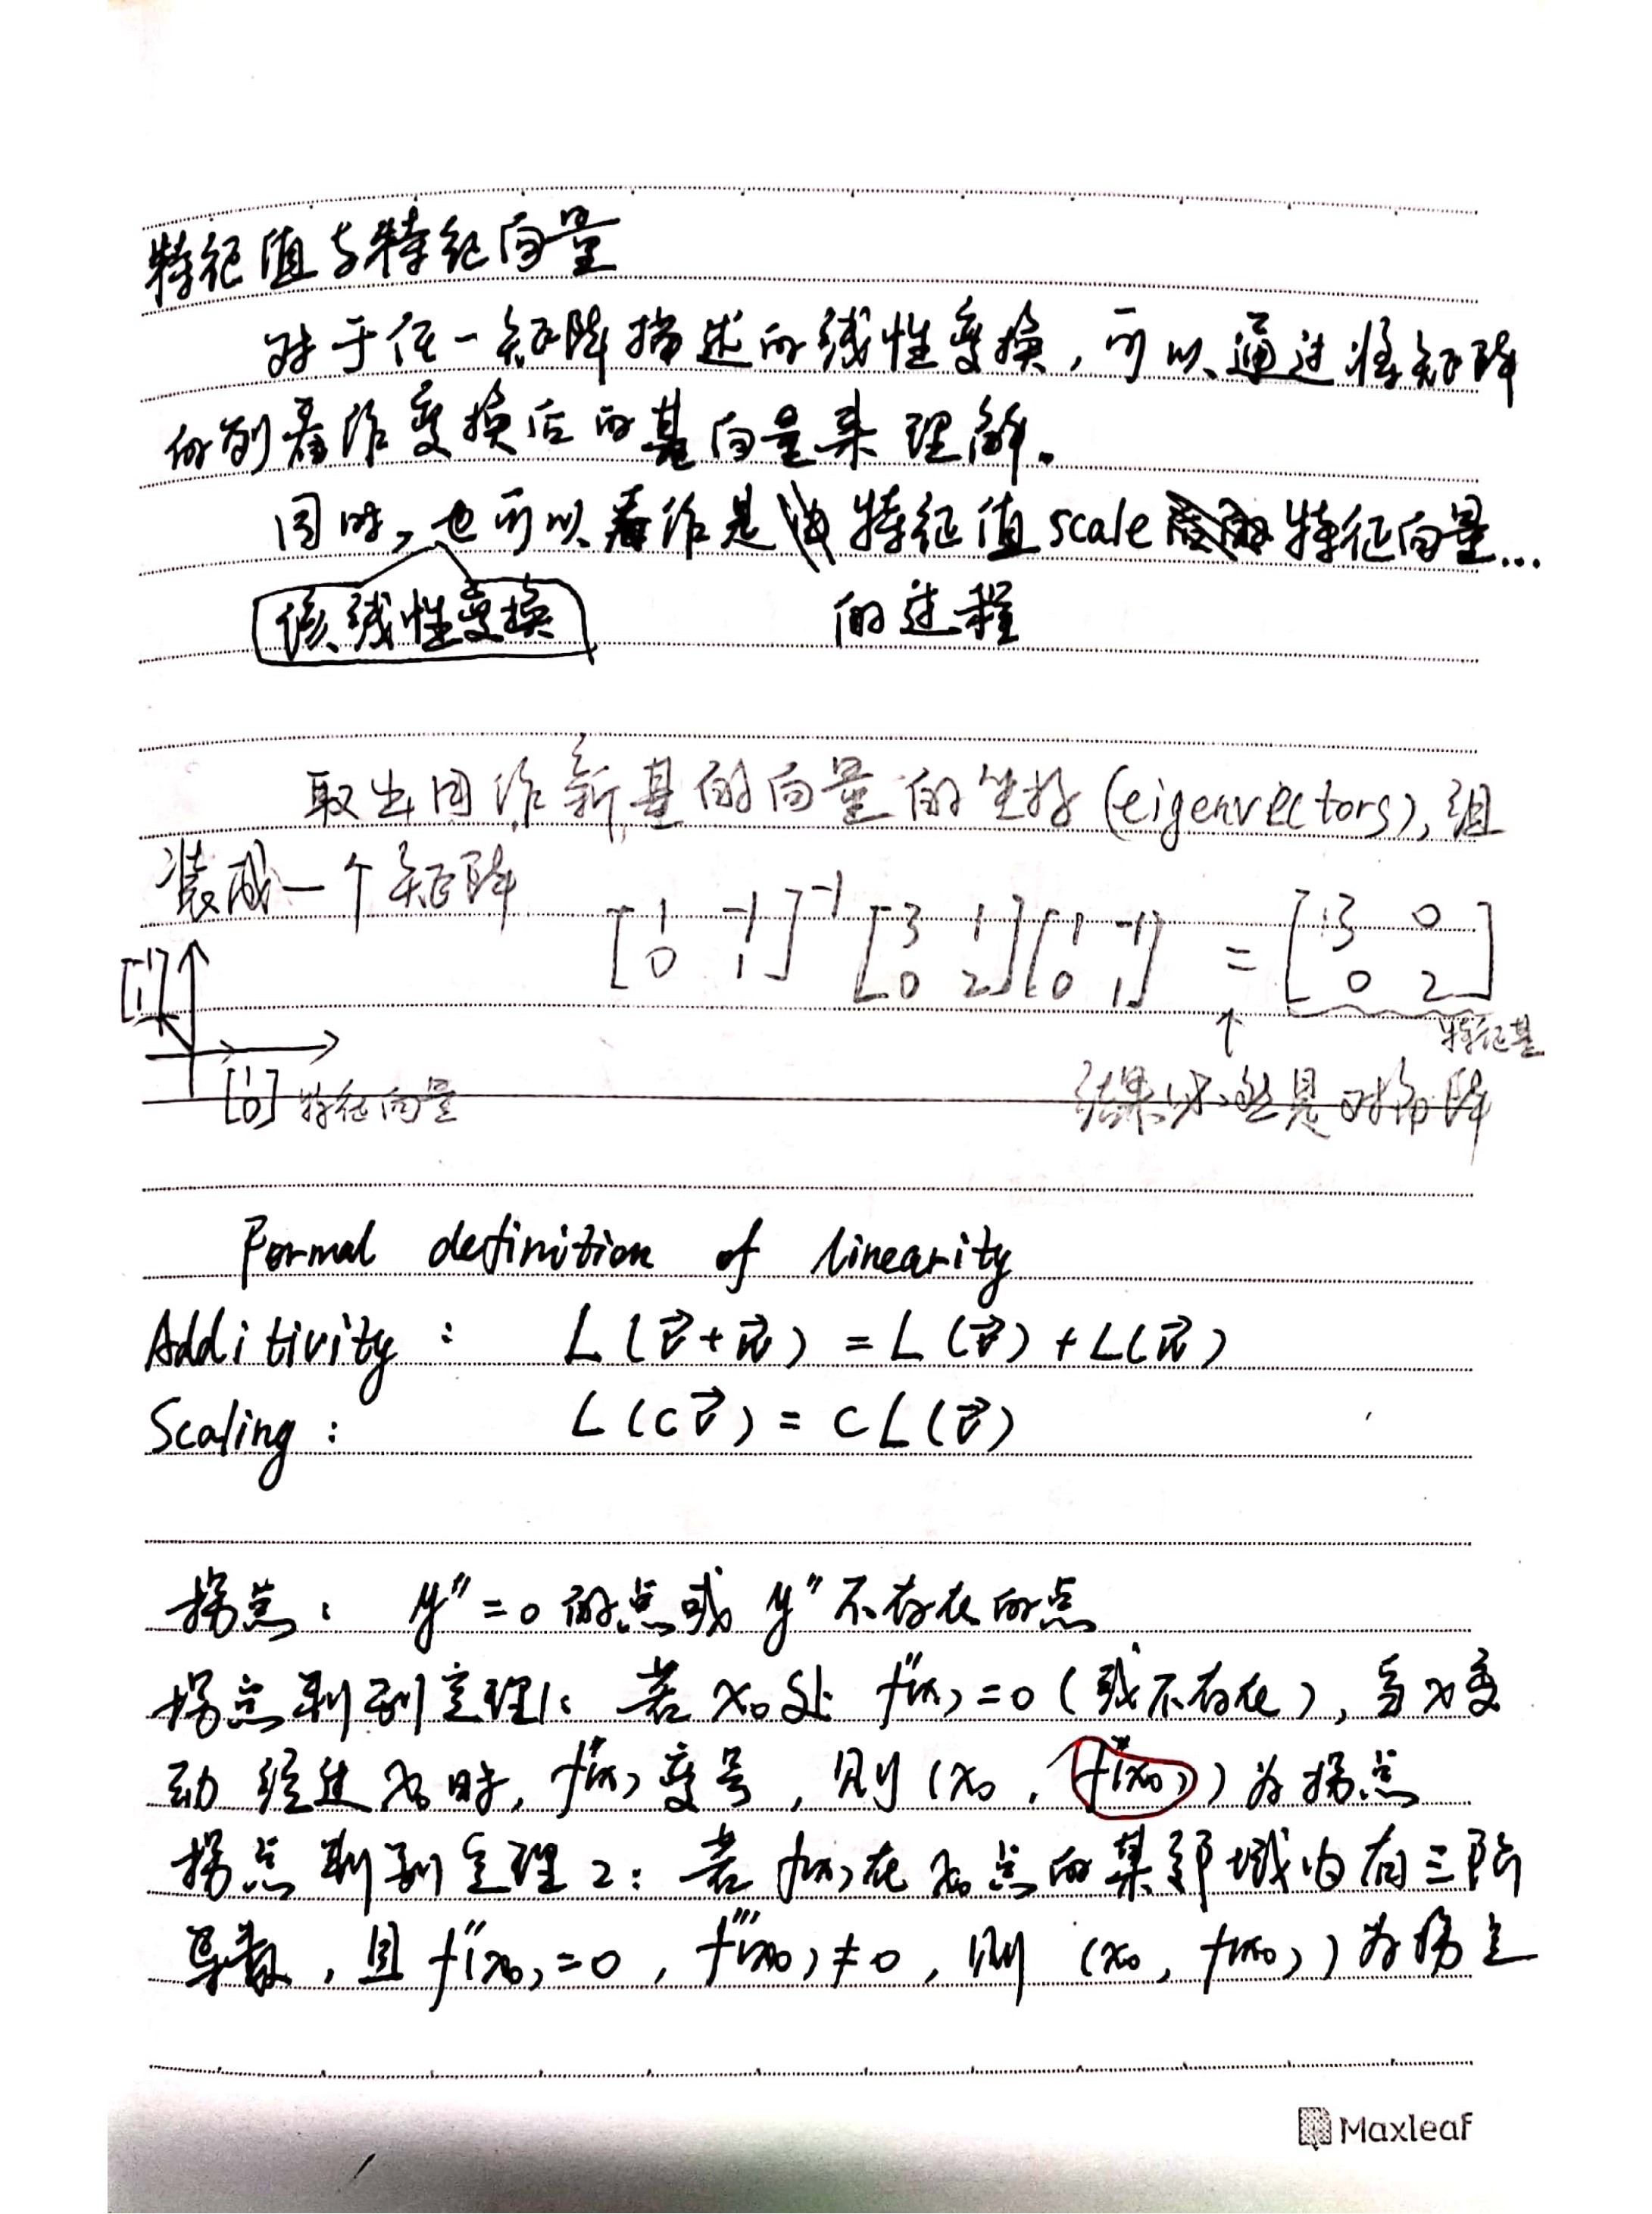 特征值与特征向量
对于任一矩阵描述的线性变换，可以通过将矩阵
的列看作变换后的基向量来理解。
同时，也可以看作是 特征值 scale 特征向量...
该线性变换 的过程
取出用作新基的向量的坐标 (eigenvectors), 组
装成一个矩阵
[1 -1; 0 1]^-1 [3 1; 0 2] [1 -1; 0 1] = [3 0; 0 2]
[-1; 1]
↑ 特征基
[1; 0] 特征向量
结果必然是对角阵
Formal definition of linearity
Additivity : L(v⃗+w⃗) = L(v⃗) + L(w⃗)
Scaling : L(cv⃗) = cL(v⃗)
拐点： y″=0 的点或 y″不存在的点
拐点判别定理1: 若 x₀处 f″(x)=0 (或不存在), 当x变
动经过x₀时, f″(x) 变号, 则 (x₀, f″(x₀)) 为拐点
拐点判别定理2: 若 f(x)在x₀点的某邻域内有三阶
导数, 且 f″(x₀)=0, f‴(x₀)≠0, 则 (x₀, f(x₀)) 为拐点
Maxleaf